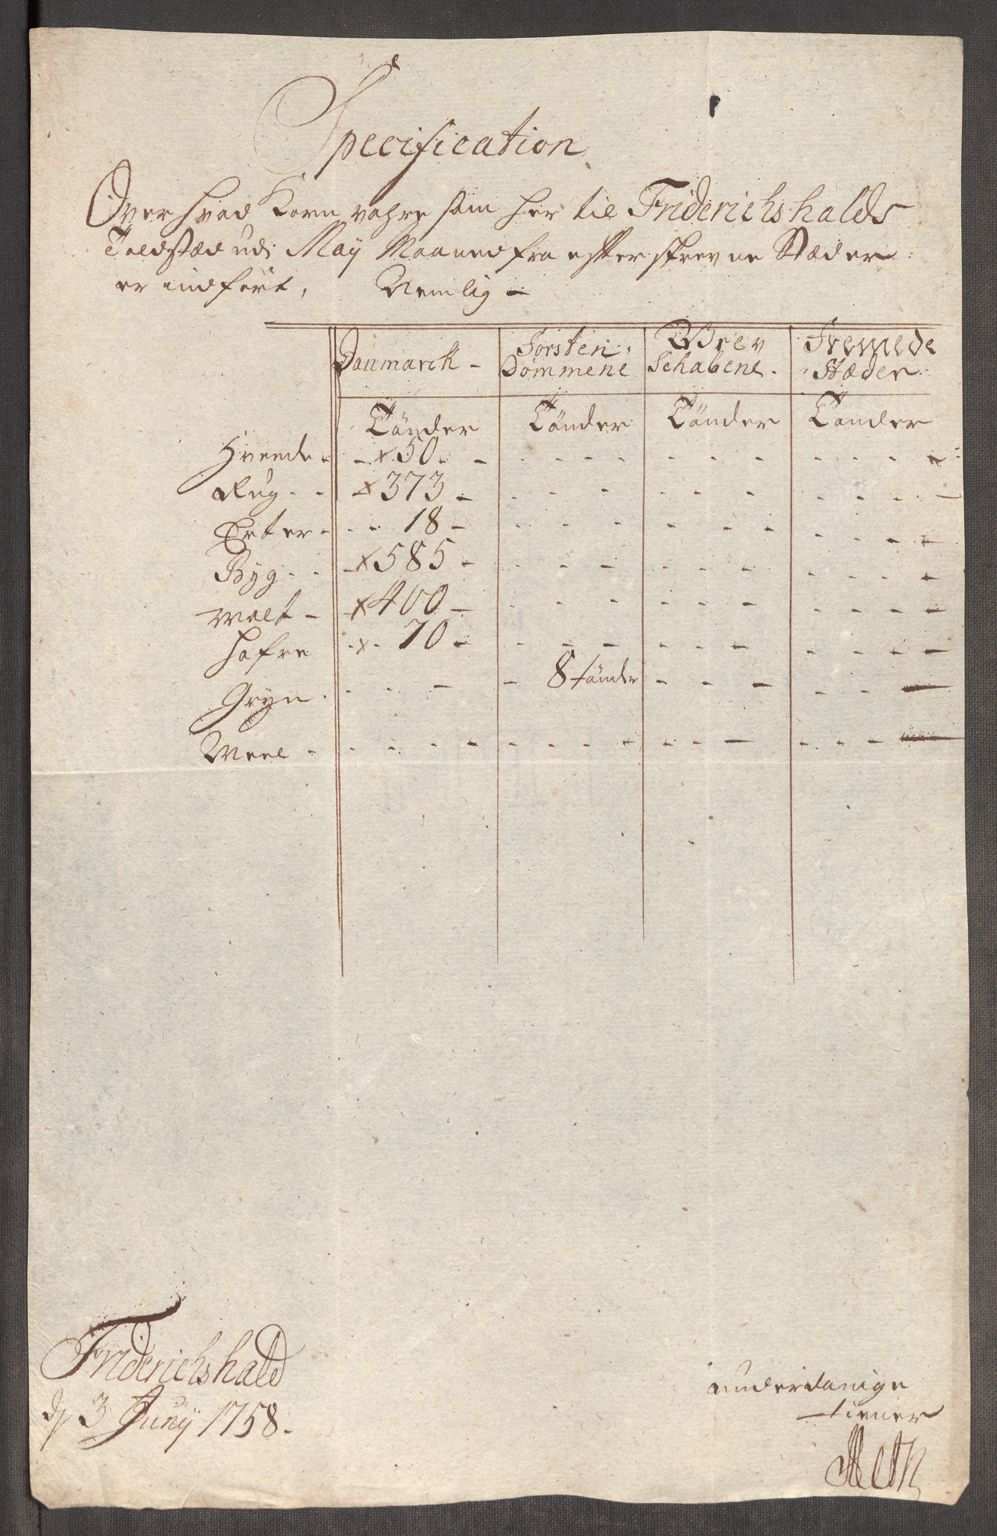 Specification
Over hvad Korn vahre som her til Friderichshalds
Toldstæd udi Maij Maaned fra efterskrevne Stæder
er indført, Nemlig -
Danmarck - Førsten Dømmene Grev Schabene. Fremede Stæder
Tönder Tönder Tönder Tönder
Hvede - x 50 -
Rug - x 373 -
Erter - - 18 -
Byg - x 585 -
Malt - x 400 -
Hafre x 70 -
Gryn - - 8 tønder
Meel -
Friderichshald
d 3 Junij 1758.
underdanige
tiener